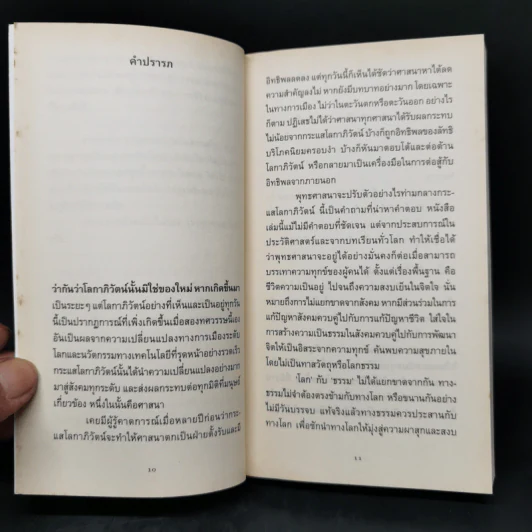 คำปรารภ
ว่ากันว่าโลกาภิวัตน์นั้นมิใช่ของใหม่ หากเกิดขึ้นมา
เป็นระยะๆ แต่โลกาภิวัตน์อย่างที่เห็นและเป็นอยู่ทุกวัน
นี้เป็นปรากฏการณ์ที่เพิ่งเกิดขึ้นเมื่อสองทศวรรษนี้เอง
อันเป็นผลจากความเปลี่ยนแปลงทางการเมืองระดับ
โลกและนวัตกรรมทางเทคโนโลยีที่รุดหน้าอย่างรวดเร็ว
กระแสโลกาภิวัตน์นั้นได้นำความเปลี่ยนแปลงอย่างมาก
มาสู่สังคมทุกระดับ และส่งผลกระทบต่อทุกมิติที่มนุษย์
เกี่ยวข้อง หนึ่งในนั้นคือศาสนา
เคยมีผู้รู้คาดการณ์เมื่อหลายปีก่อนว่ากระ-
แสโลกาภิวัตน์จะทำให้ศาสนาตกเป็นฝ่ายตั้งรับและมี
10
อิทธิพลลดลง แต่ทุกวันนี้ก็เห็นได้ชัดว่าศาสนาหาได้ลด
ความสำคัญลงไม่ หากยังมีบทบาทอย่างมาก โดยเฉพาะ
ในทางการเมือง ไม่ว่าในตะวันตกหรือตะวันออก อย่างไร
ก็ตาม ปฏิเสธไม่ได้ว่าศาสนาทุกศาสนาได้รับผลกระทบ
ไม่น้อยจากกระแสโลกาภิวัตน์ บ้างก็ถูกอิทธิพลของลัทธิ
บริโภคนิยมครอบงำ บ้างก็หันมาตอบโต้และต่อต้าน
โลกาภิวัตน์ หรือกลายมาเป็นเครื่องมือในการต่อสู้กับ
อิทธิพลจากภายนอก
พุทธศาสนาจะปรับตัวอย่างไรท่ามกลางกระ-
แสโลกาภิวัตน์ นี้เป็นคำถามที่น่าหาคำตอบ หนังสือ
เล่มนี้แม้ไม่มีคำตอบที่ชัดเจน แต่จากประสบการณ์ใน
ประวัติศาสตร์และจากบทเรียนทั่วโลก ทำให้เชื่อได้
ว่าพุทธศาสนาจะอยู่ได้อย่างมั่นคงก็ต่อเมื่อสามารถ
บรรเทาความทุกข์ของผู้คนได้ ตั้งแต่เรื่องพื้นฐาน คือ
ชีวิตความเป็นอยู่ ไปจนถึงความสงบเย็นในจิตใจ นั่น
หมายถึงการไม่แยกขาดจากสังคม หากมีส่วนร่วมในการ
แก้ปัญหาสังคมควบคู่ไปกับการแก้ปัญหาชีวิต ใส่ใจใน
การสร้างความเป็นธรรมในสังคมควบคู่ไปกับการพัฒนา
จิตให้เป็นอิสระจากความทุกข์ ค้นพบความสุขภายใน
โดยไม่เป็นทาสวัตถุหรือโลกธรรม
'โลก' กับ 'ธรรม' ไม่ได้แยกขาดจากกัน ทาง-
ธรรมไม่จำต้องตรงข้ามกับทางโลก หรือขนานกันอย่าง
ไม่มีวันบรรจบ แท้จริงแล้วทางธรรมควรประสานกับ
ทางโลก เพื่อชักนำทางโลกให้มุ่งสู่ความผาสุกและสงบ
11